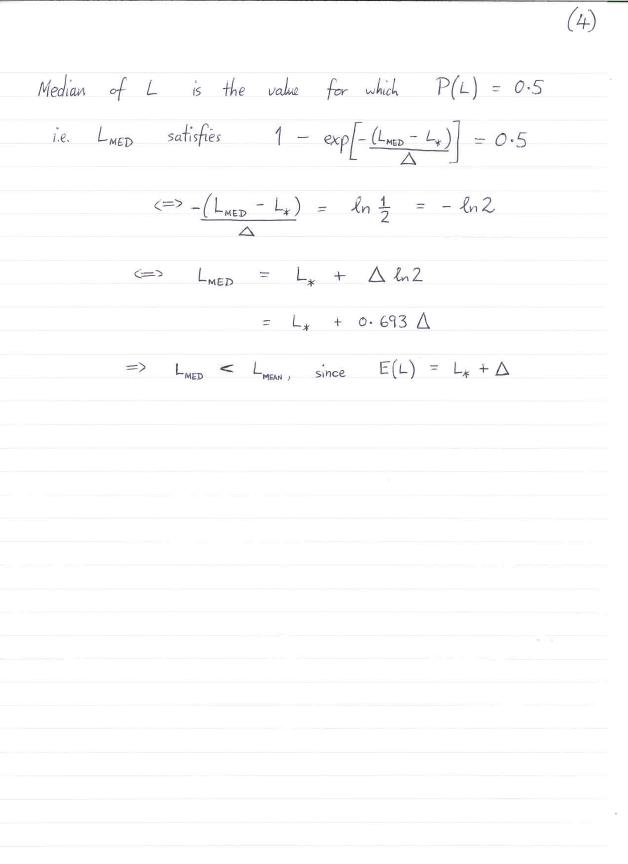 (4)
Median of L is the value for which P(L) = 0.5
i.e. L_MED satisfies 1 - exp[-(L_MED - L_*)/Δ] = 0.5
<=> -(L_MED - L_*)/Δ = ln 1/2 = - ln 2
<=> L_MED = L_* + Δ ln 2
= L_* + 0.693 Δ
=> L_MED < L_MEAN, since E(L) = L_* + Δ